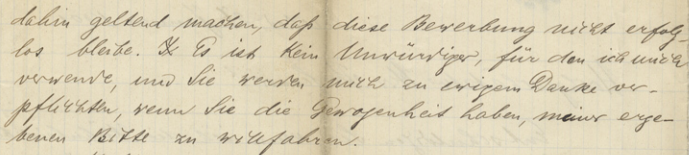 dahin geltend machen, daß diese Bewerbung nicht erfolg-
los bleibe. Es ist kein Unwürdiger, für den ich mich
verwende, und Sie werden mich zu ewigem Danke ver-
pflichten, wenn Sie die Gewogenheit haben, meiner erge-
benen Bitte zu willfahren.